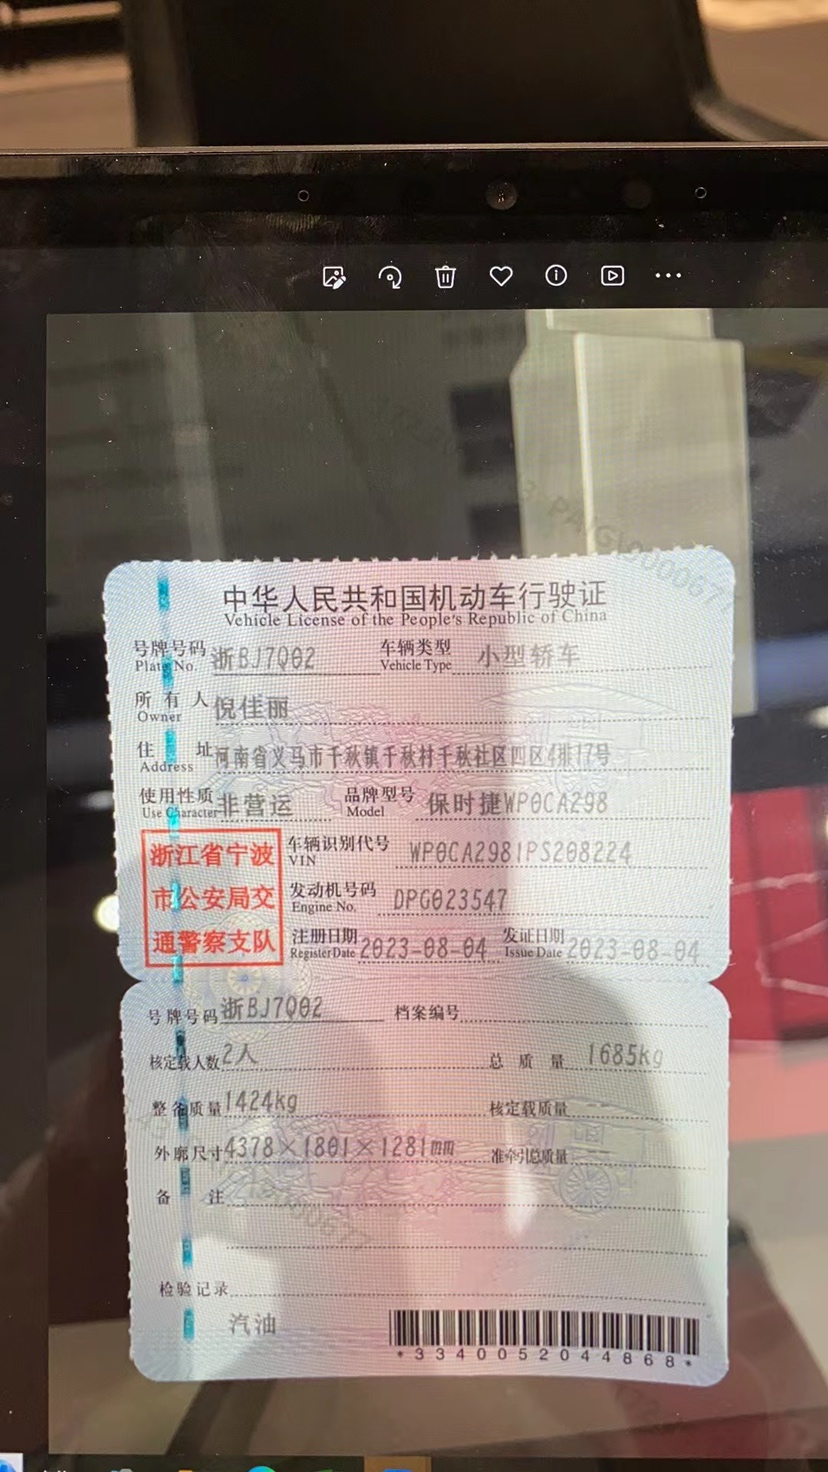 中华人民共和国机动车行驶证
Vehicle License of the People's Republic of China
号牌号码 浙BJ7Q02 车辆类型 小型轿车
Plate No. Vehicle Type
所有人 倪佳丽
Owner
住址 河南省义马市千秋镇千秋村千秋社区四区4排17号
Address
使用性质 非营运 品牌型号 保时捷WP0CA298
Use Character Model
浙江省宁波
市公安局交
通警察支队
车辆识别代号 WP0CA2981PS208224
VIN
发动机号码 DPG023547
Engine No.
注册日期 2023-08-04 发证日期 2023-08-04
Register Date Issue Date
号牌号码 浙BJ7Q02 档案编号
核定载人数 2人 总质量 1685kg
整备质量 1424kg 核定载质量
外廓尺寸 4378×1801×1281mm 准牵引总质量
备注
检验记录
汽油
*3340052044868*